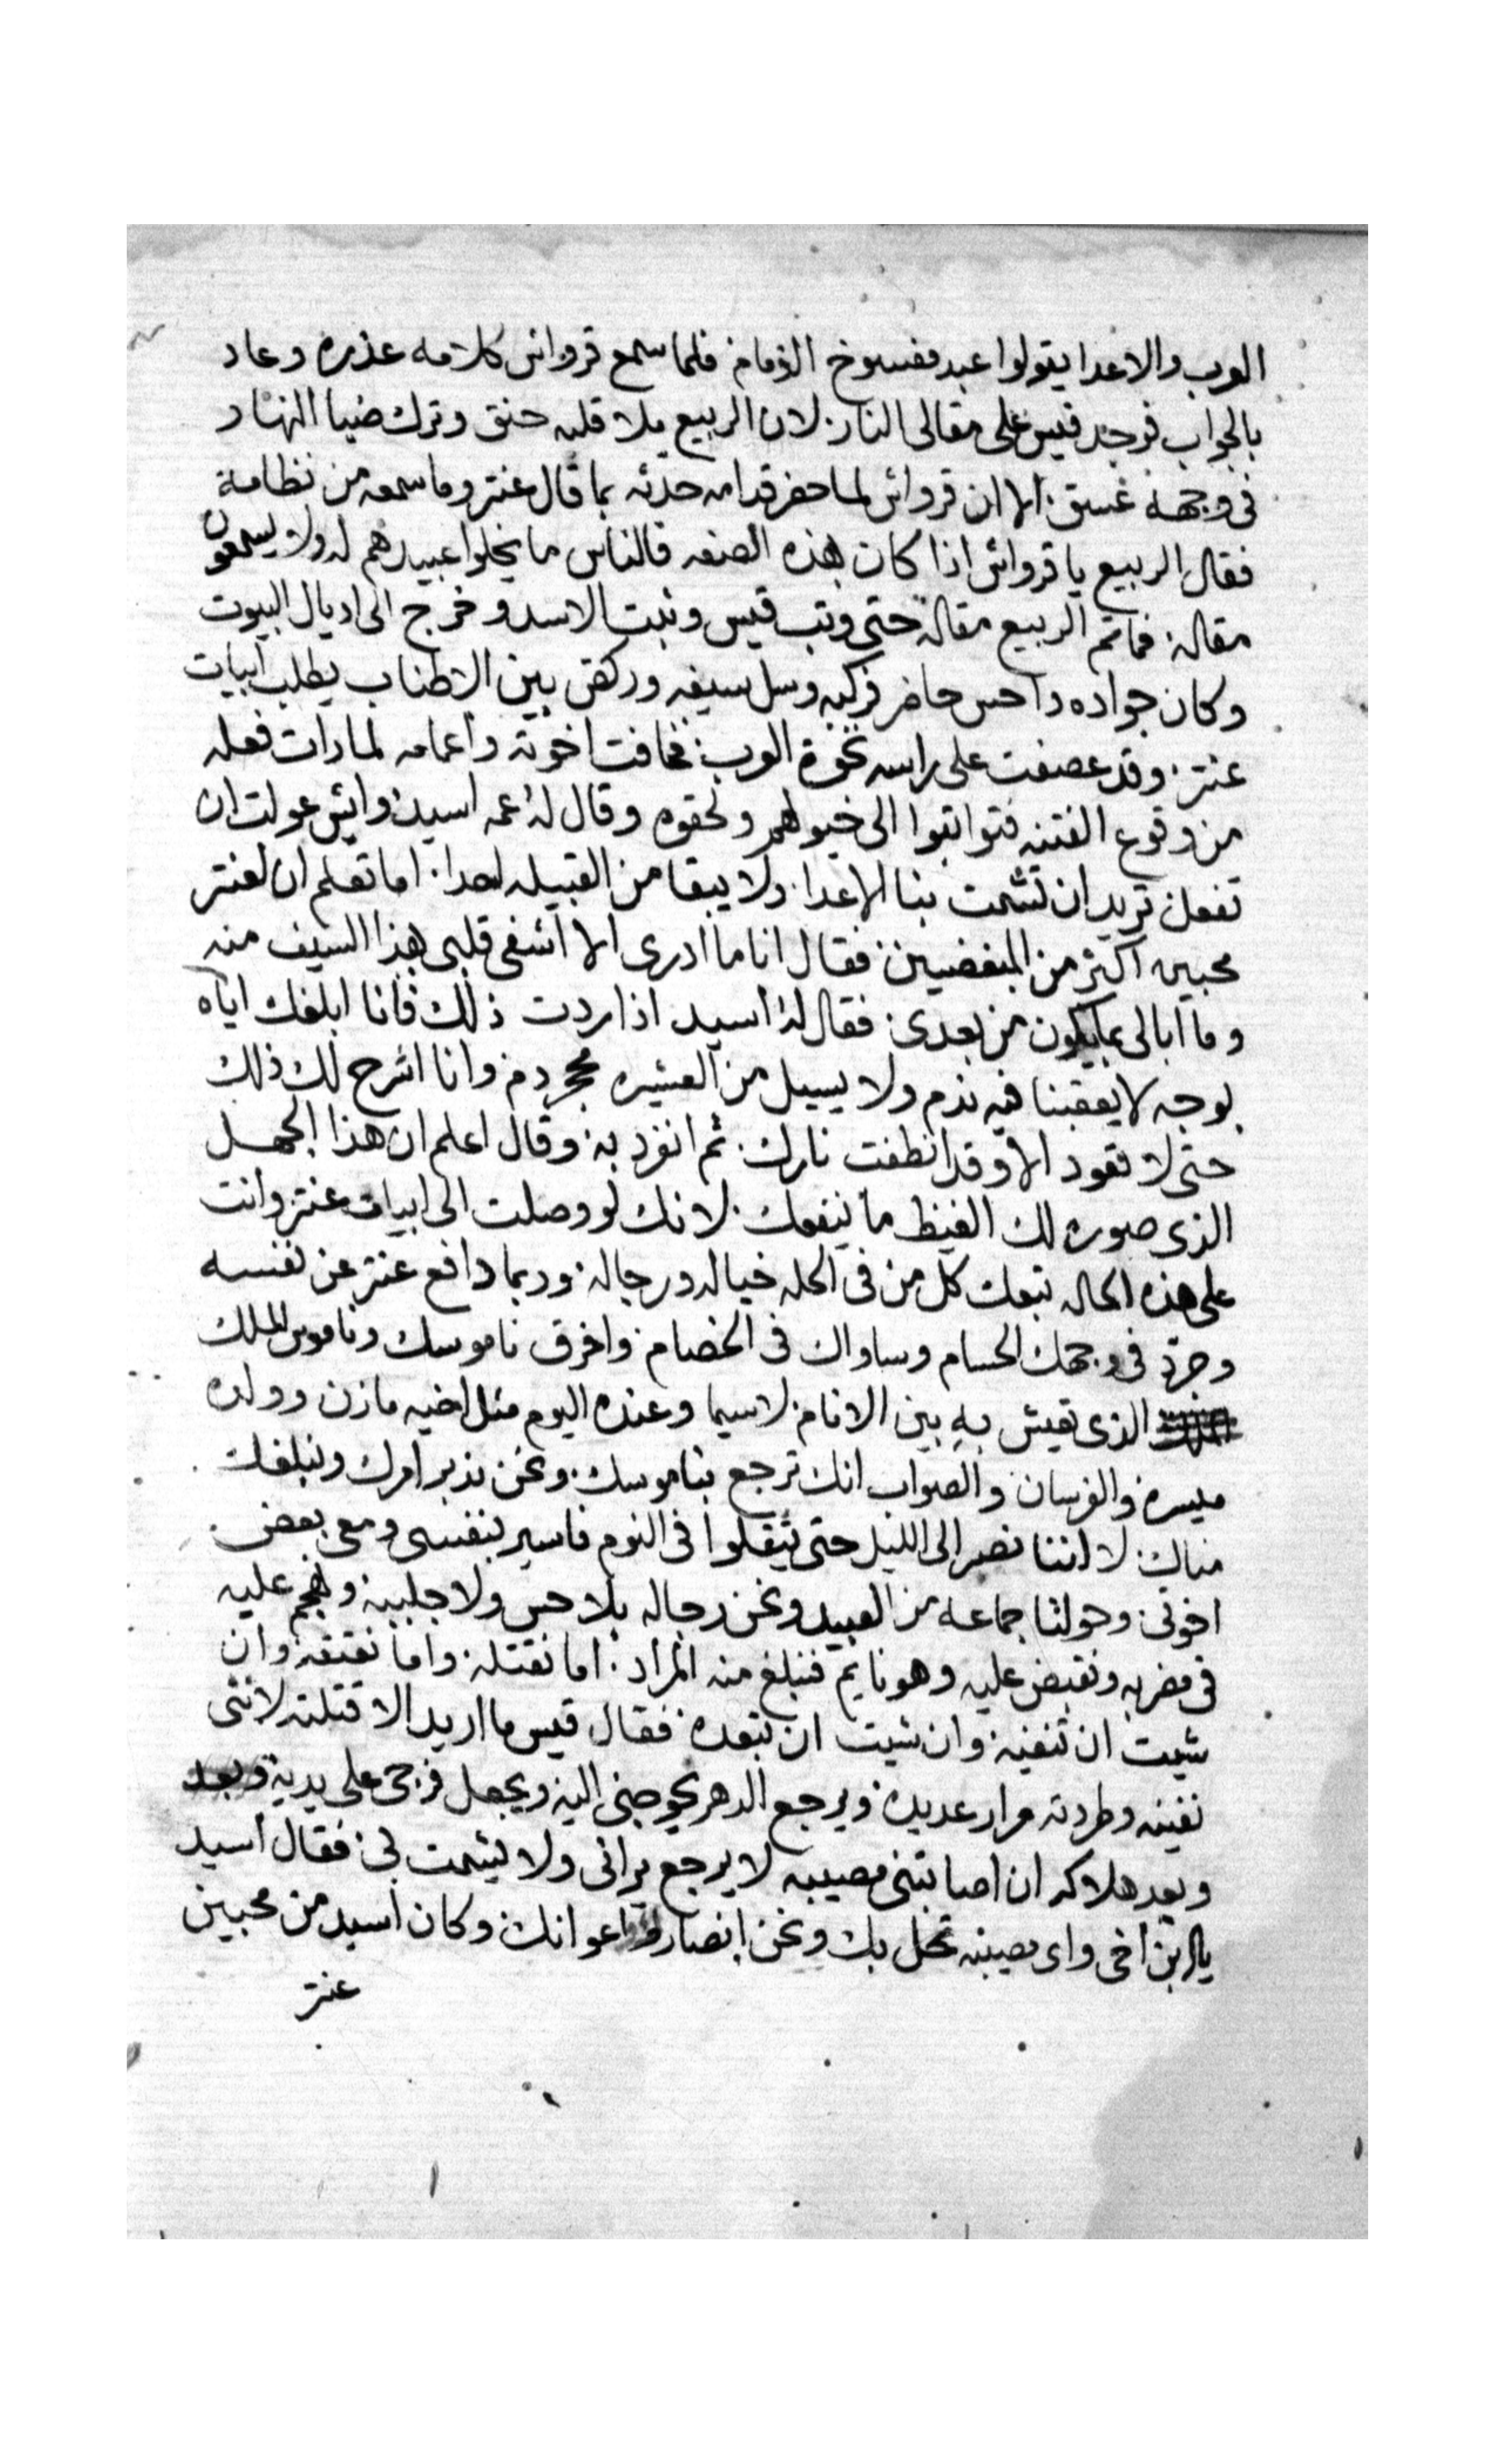 العرب والاعدا يقولوا عبد مفسوخ الذمام فلما سمع قرواش كلامه عذره وعاد
بالجواب فوجد قيس على مقالى النار لان الربيع ملا قلبه حنق وترك ضيا النهار
فى وجهه غسق الا ان قرواش لما حضر قدامه حدثه بما قال عنتر وما سمعه من نظامه
فقال الربيع يا قرواش اذا كان بهذه الصفه فالناس ما يخلوا عبيدهم له ولا يسمعون
مقاله فما تم الربيع مقاله حتى وثب قيس وثبت الاسد وخرج الى اديال البيوت
وكان جواده داحس حاضر فركبه وسل سيفه وركض بين الاطناب يطلب ابيات
عنتر وقد عصفت على راسه نخوة العرب فخافت اخوته واعمامه لما رات فعله
من وقوع الفتنه فتواثبوا الى خيولهم ولحقوه وقال له عمه اسيد وايش عولت ان
تفعل تريد ان تشمت بنا الاعدا ولا يبقا من القبيله احدا اما تعلم ان لعنتر
محبين اكثر من المبغضيين فقال انا ما ادرى الا اشفى قلبى بهذا السيف منه
وما ابالى بما يكون من بعدى فقال له اسيد اذا اردت ذلك فانا ابلغك اياه
بوجه لا يعقبنا فيه ندم ولا يسيل من العشيره محجر دم وانا اشرح لك ذلك
حتى لا تعود الا وقد انطفت نارك ثم انفرد به وقال اعلم ان هذا الجهل
الذى صوره لك الغيظ ما ينفعك لانك لو وصلت الى ابيات عنتر وانت
على هذه الحاله تبعك كل من فى الحله خياله ورجاله وربما دافع عنتر عن نفسه
وجرد فى وجهك الحسام وساواك فى الخصام واخرق ناموسك وناموس الملك
الذى تعيش به بين الانام لاسيما وعنده اليوم مثل اخيه مازن وولده
ميسره والفرسان والصواب انك ترجع بناموسك ونحن ندبر امرك ونبلغك
مناك لاننا نصبر الى الليل حتى يثقلوا فى النوم فاسير بنفسى ومعى بعض
اخوتى وحولنا جماعه من العبيد ونحن رجاله بلا حس ولا جلبيه ونهجم عليه
فى مضربه ونقبض عليه وهو نايم فنبلغ منه المراد اما نقتله واما نعتقه وان
شيت ان تنفيه وان شيت ان تبعده فقال قيس ما اريد الا قتله لاننى
نفيته وطردته مرار عديده ويرجع الدهر يحوجنى اليه ويجعل فرجى على يديه وبعد
وبعد هلاكه ان اصابتنى مصيبه لا يرجع يرانى ولا يشمت بى فقال اسيد
يا ابن اخى واى مصيبه تحل بك ونحن انصارك واعوانك وكان اسيد من محبين
عنتر